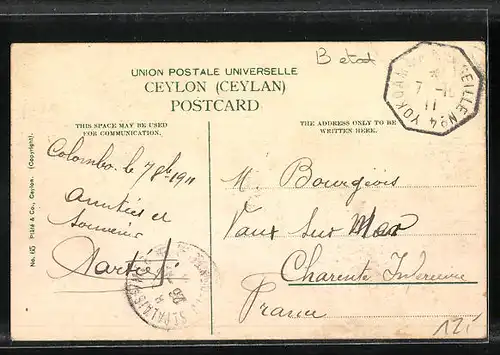 UNION POSTALE UNIVERSELLE
CEYLON (CEYLAN)
POSTCARD
THIS SPACE MAY BE USED
FOR COMMUNICATION.
THE ADDRESS ONLY TO BE
WRITTEN HERE.
No. 145 Plâté & Co., Ceylon. (Copyright).
Colombo le 7 8bre 1911
amitiés et
souvenirs
M. Bourgeois
Vaux sur Mer
Charente Inferieure
France
YOKOHAMA A MARSEILLE No 4
7
11
ST PALAIS
12,-